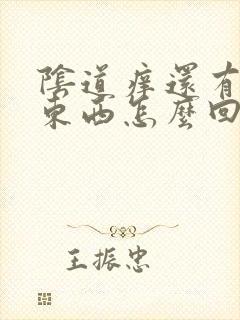 陰道痒還有
東西怎麼回
王振忠